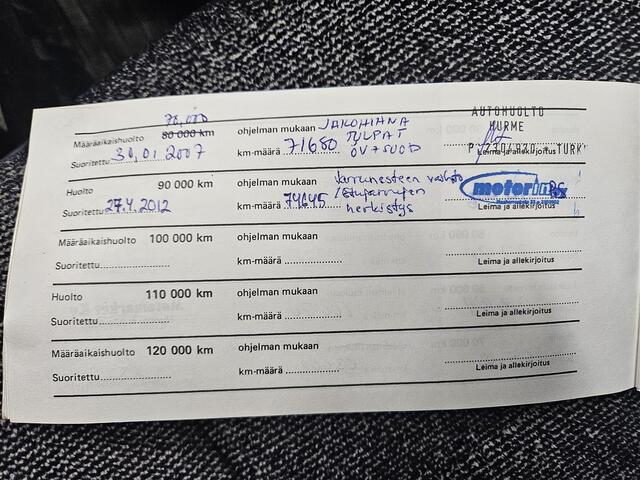 70,000
Määräaikaishuolto 80 000 km ohjelman mukaan JAKOHIHNA AUTOHUOLTO
TULPAT NURME
Suoritettu 30.01.2007 km-määrä 71650 ÖV+SUOD P. TURK
Leima ja allekirjoitus
Huolto 90 000 km ohjelman mukaan Jarrunesteen vaihto motorin
Suoritettu 27.4.2012 km-määrä 74645 herkistys
Leima ja allekirjoitus
Määräaikaishuolto 100 000 km ohjelman mukaan
Suoritettu km-määrä
Leima ja allekirjoitus
Huolto 110 000 km ohjelman mukaan
Suoritettu km-määrä
Leima ja allekirjoitus
Määräaikaishuolto 120 000 km ohjelman mukaan
Suoritettu km-määrä
Leima ja allekirjoitus